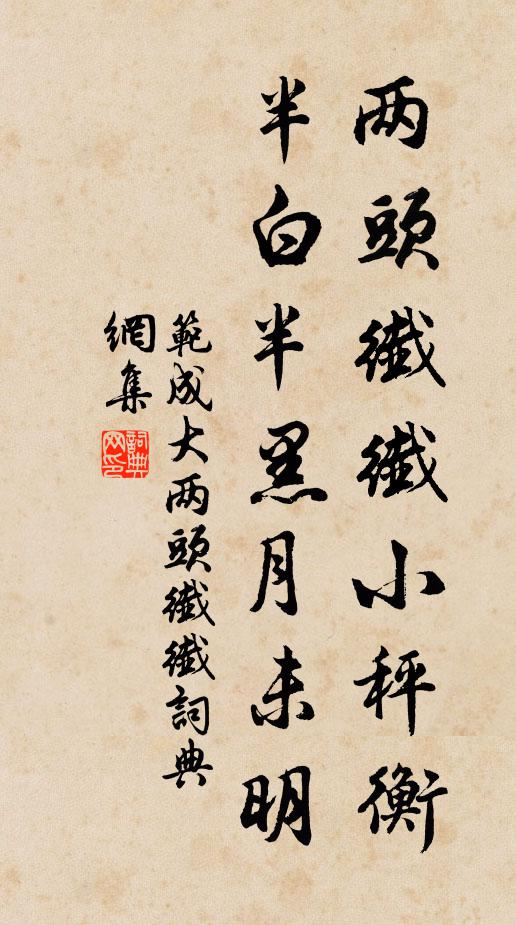 两頭纖纖小秤衡
半白半黑月未明
範成大两頭纖纖詞典
網集
詞典
网印